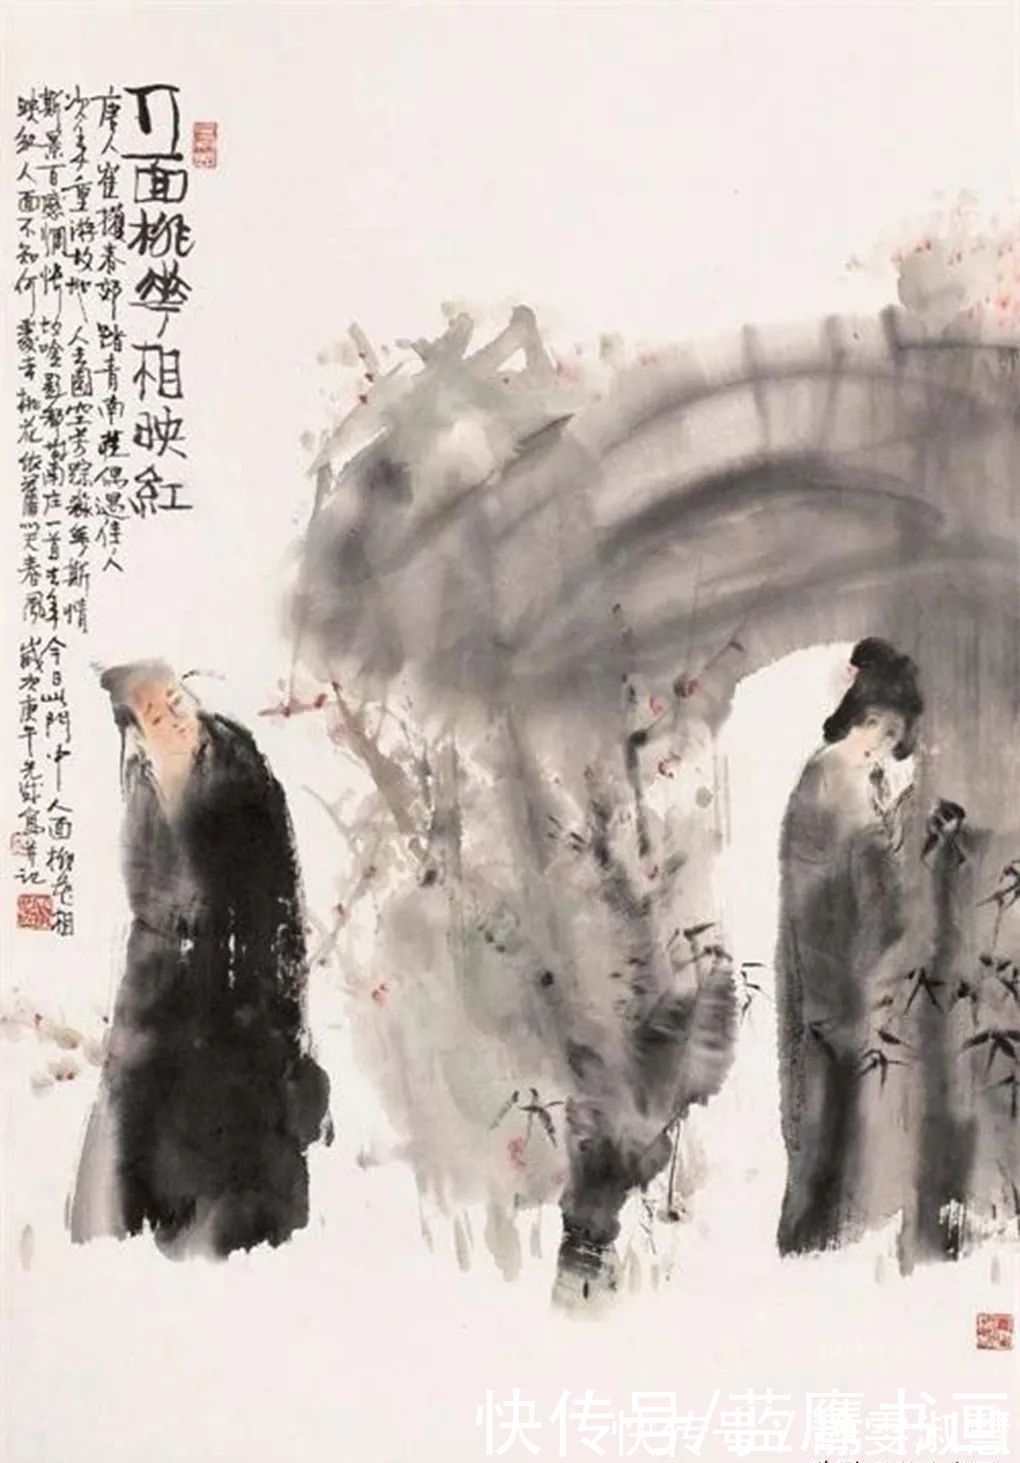 人面桃華相映紅
唐人崔護春郊踏青南莊偶遇佳人
次年重游故地人去園空芳踪杳無斯情
斯景百感惆悵吟題都城南庄一首去年今日此門中人面桃花相
映紅人面不知何處去桃花依舊笑春風 歲次庚午寫并记
快传号/蓝鹰书画
快传号/